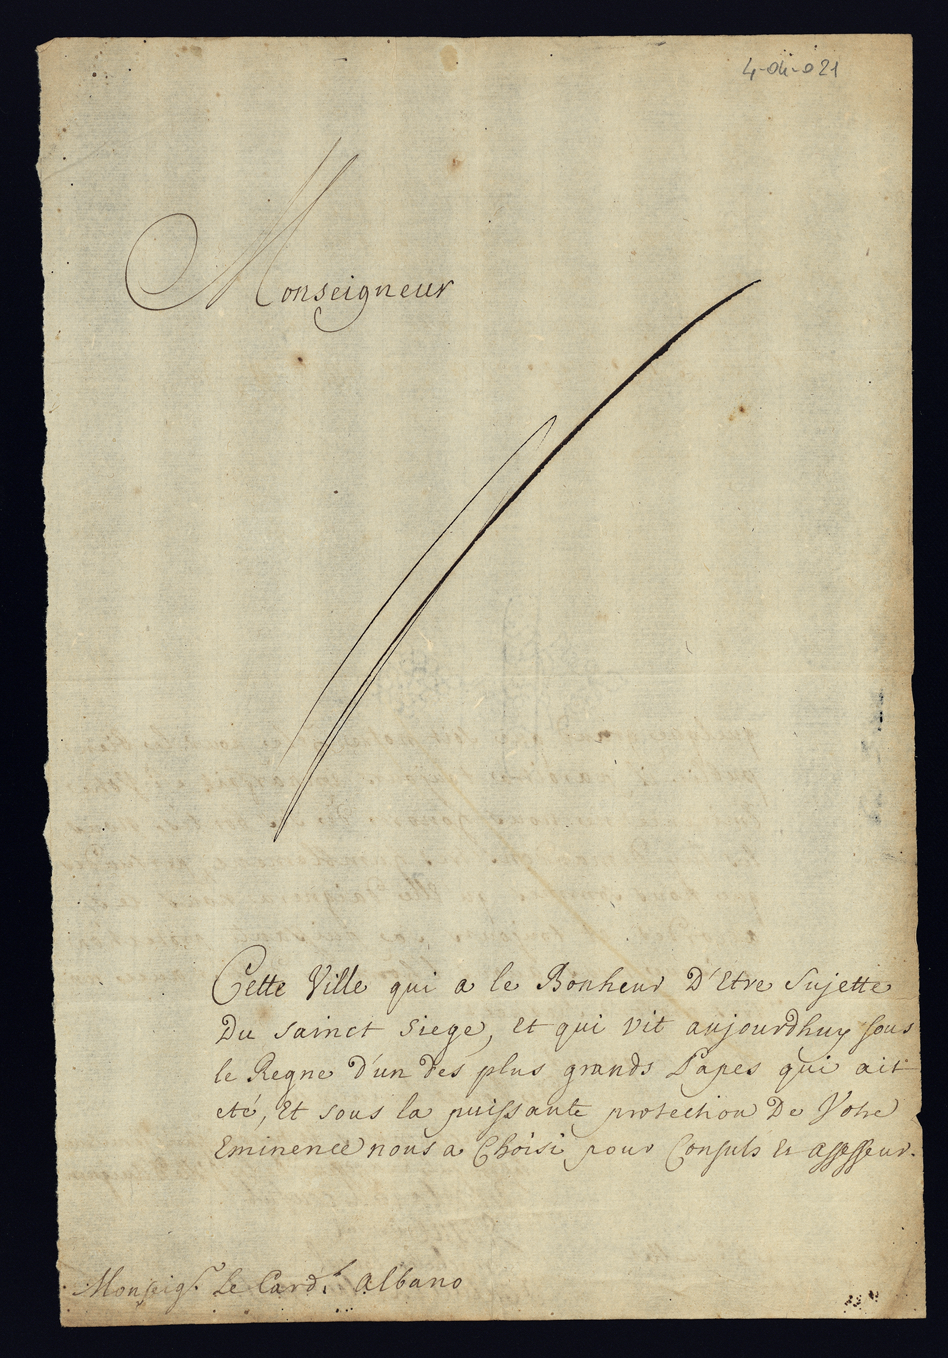 4-04-021
Monseigneur
Cette Ville qui a le Bonheur D'Etre Sujette
Du sainct siege, Et qui vit aujourdhuy sous
le Regne d'un des plus grands Papes qui ait
eté, Et sous la puissante protection De Votre
Eminence nous a Choisi pour Consuls Et assesseur.
Monseigr Le Cardl albano